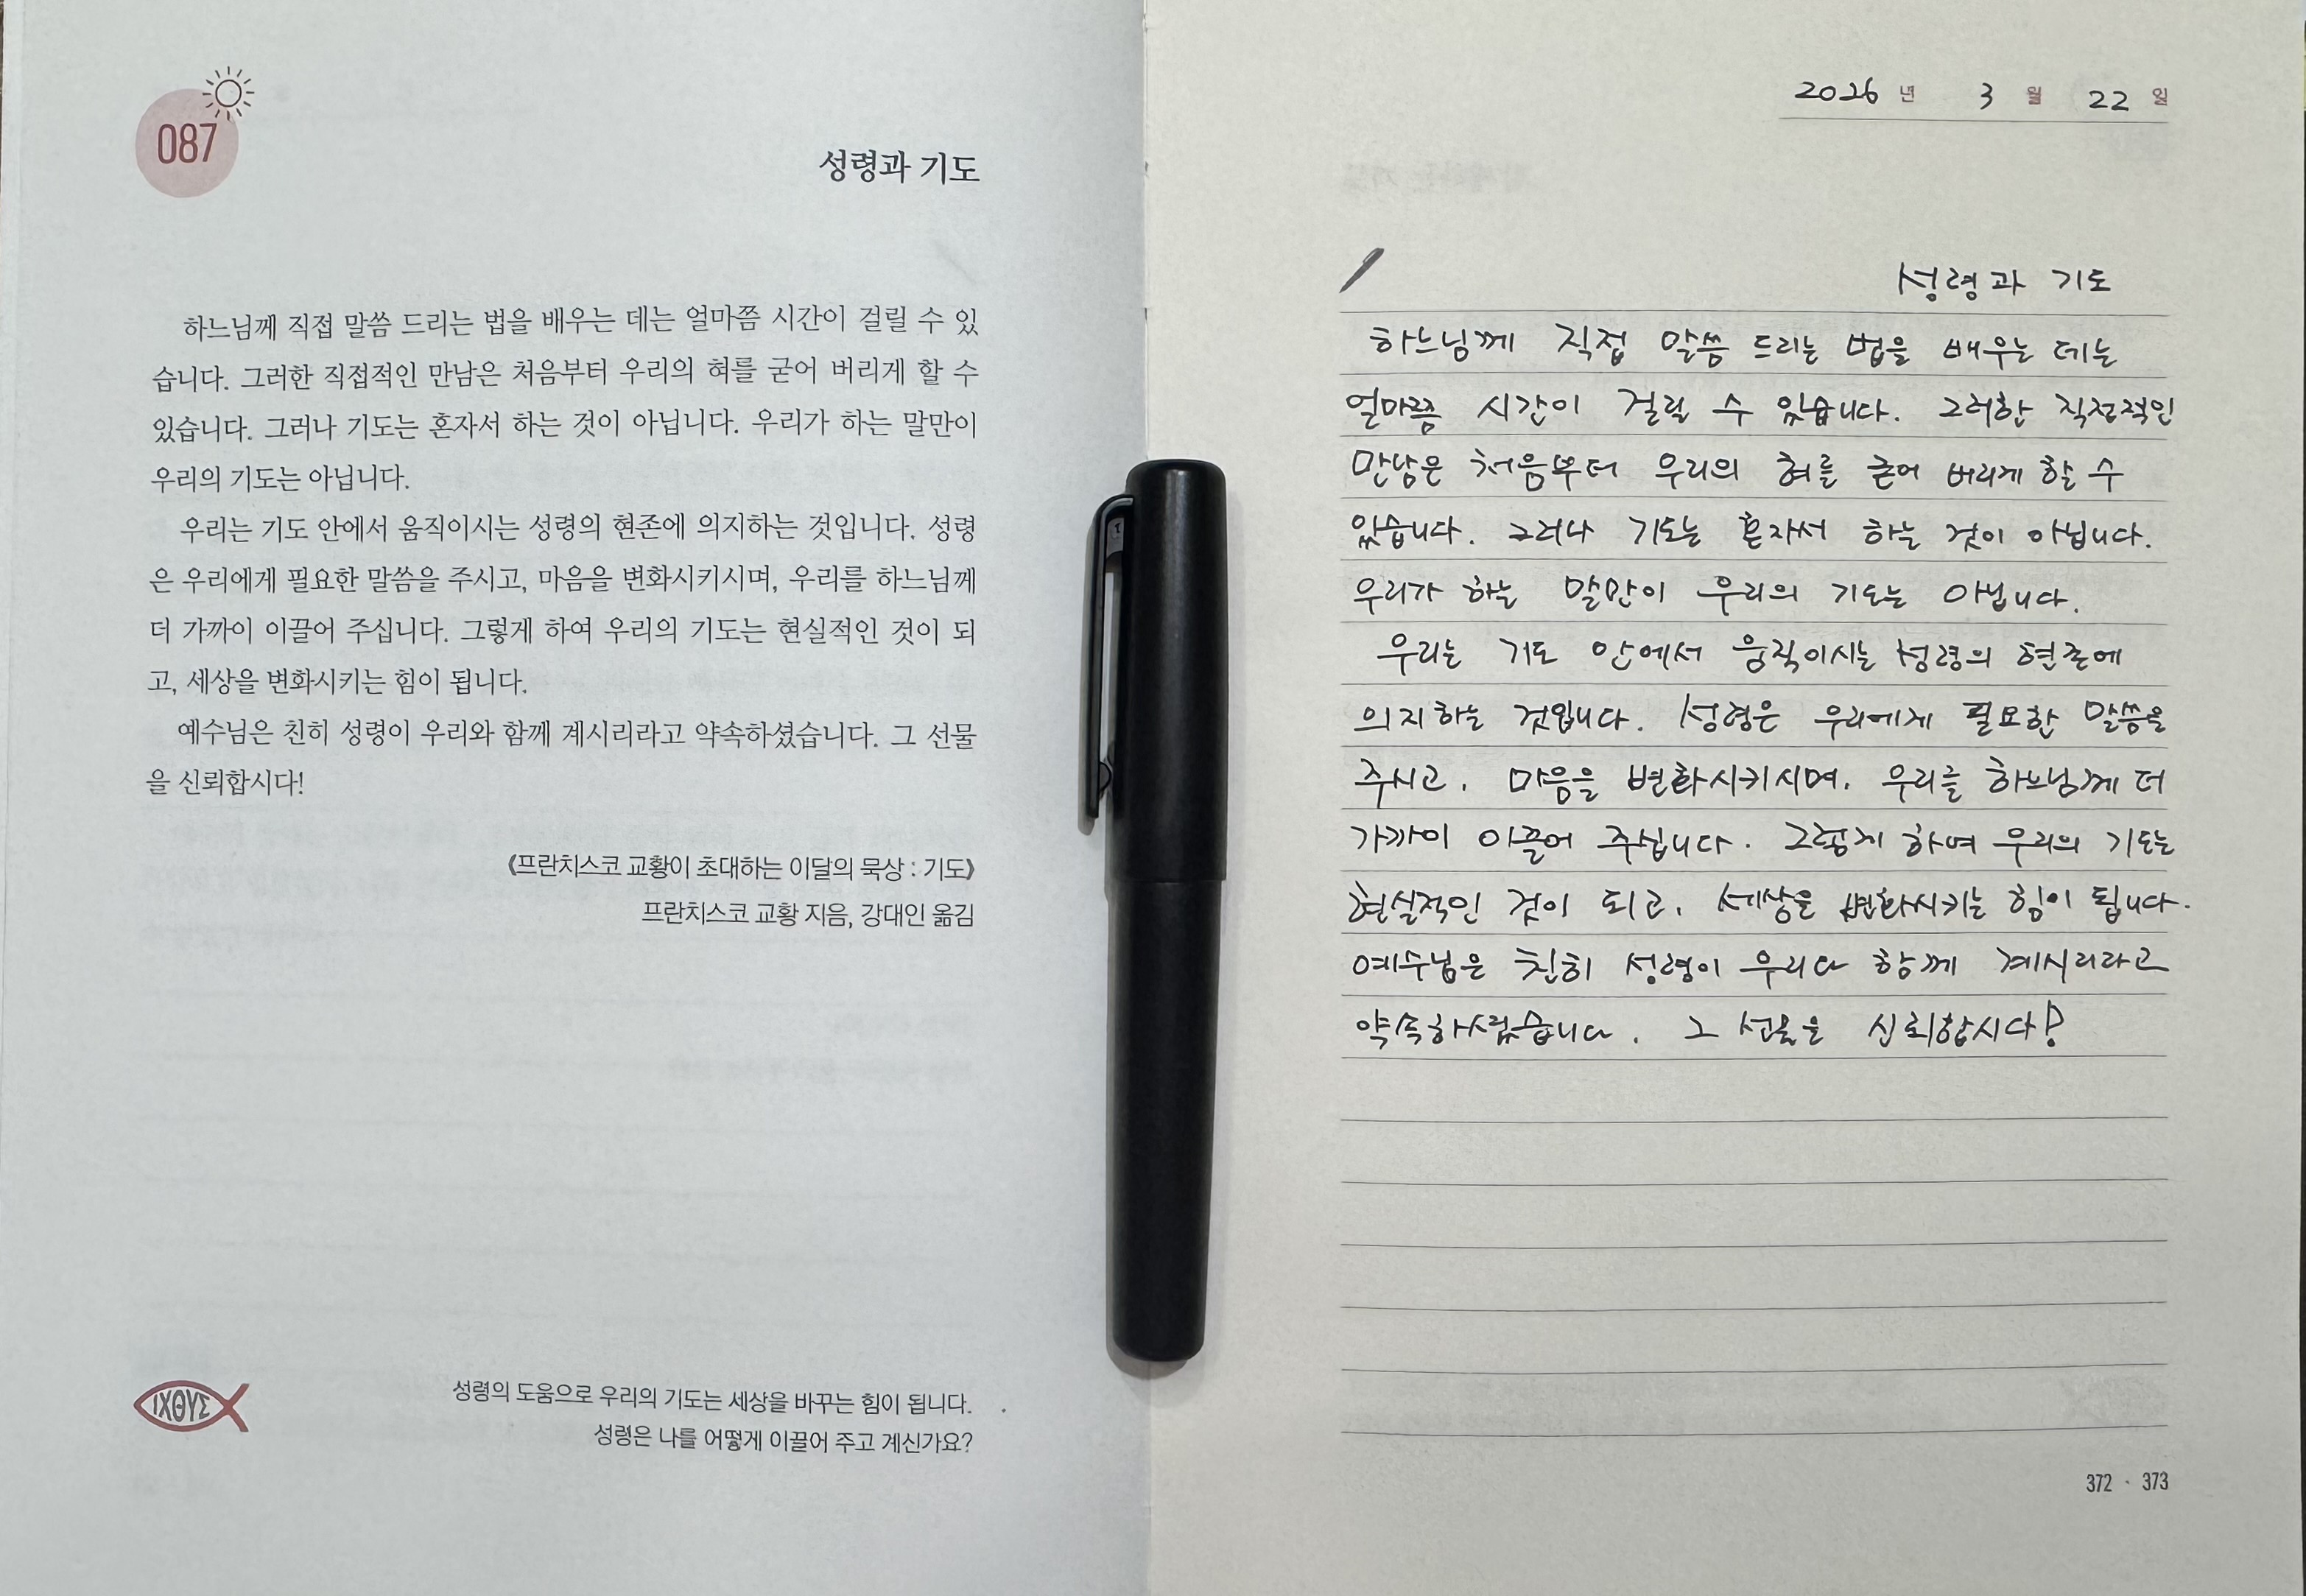 087
성령과 기도
하느님께 직접 말씀 드리는 법을 배우는 데는 얼마쯤 시간이 걸릴 수 있
습니다. 그러한 직접적인 만남은 처음부터 우리의 혀를 굳어 버리게 할 수
있습니다. 그러나 기도는 혼자서 하는 것이 아닙니다. 우리가 하는 말만이
우리의 기도는 아닙니다.
우리는 기도 안에서 움직이시는 성령의 현존에 의지하는 것입니다. 성령
은 우리에게 필요한 말씀을 주시고, 마음을 변화시키시며, 우리를 하느님께
더 가까이 이끌어 주십니다. 그렇게 하여 우리의 기도는 현실적인 것이 되
고, 세상을 변화시키는 힘이 됩니다.
예수님은 친히 성령이 우리와 함께 계시리라고 약속하셨습니다. 그 선물
을 신뢰합시다!
《프란치스코 교황이 초대하는 이달의 묵상 : 기도》
프란치스코 교황 지음, 강대인 옮김
ΙΧΘΥΣ
성령의 도움으로 우리의 기도는 세상을 바꾸는 힘이 됩니다.
성령은 나를 어떻게 이끌어 주고 계신가요?
2026 년 3 월 22 일
성령과 기도
하느님께 직접 말씀 드리는 법을 배우는 데는
얼마쯤 시간이 걸릴 수 있습니다. 그러한 직접적인
만남은 처음부터 우리의 혀를 굳어 버리게 할 수
있습니다. 그러나 기도는 혼자서 하는 것이 아닙니다.
우리가 하는 말만이 우리의 기도는 아닙니다.
우리는 기도 안에서 움직이시는 성령의 현존에
의지하는 것입니다. 성령은 우리에게 필요한 말씀을
주시고, 마음을 변화시키시며, 우리를 하느님께 더
가까이 이끌어 주십니다. 그렇게 하여 우리의 기도는
현실적인 것이 되고, 세상을 변화시키는 힘이 됩니다.
예수님은 친히 성령이 우리와 함께 계시리라고
약속하셨습니다. 그 선물을 신뢰합시다!
372 · 373